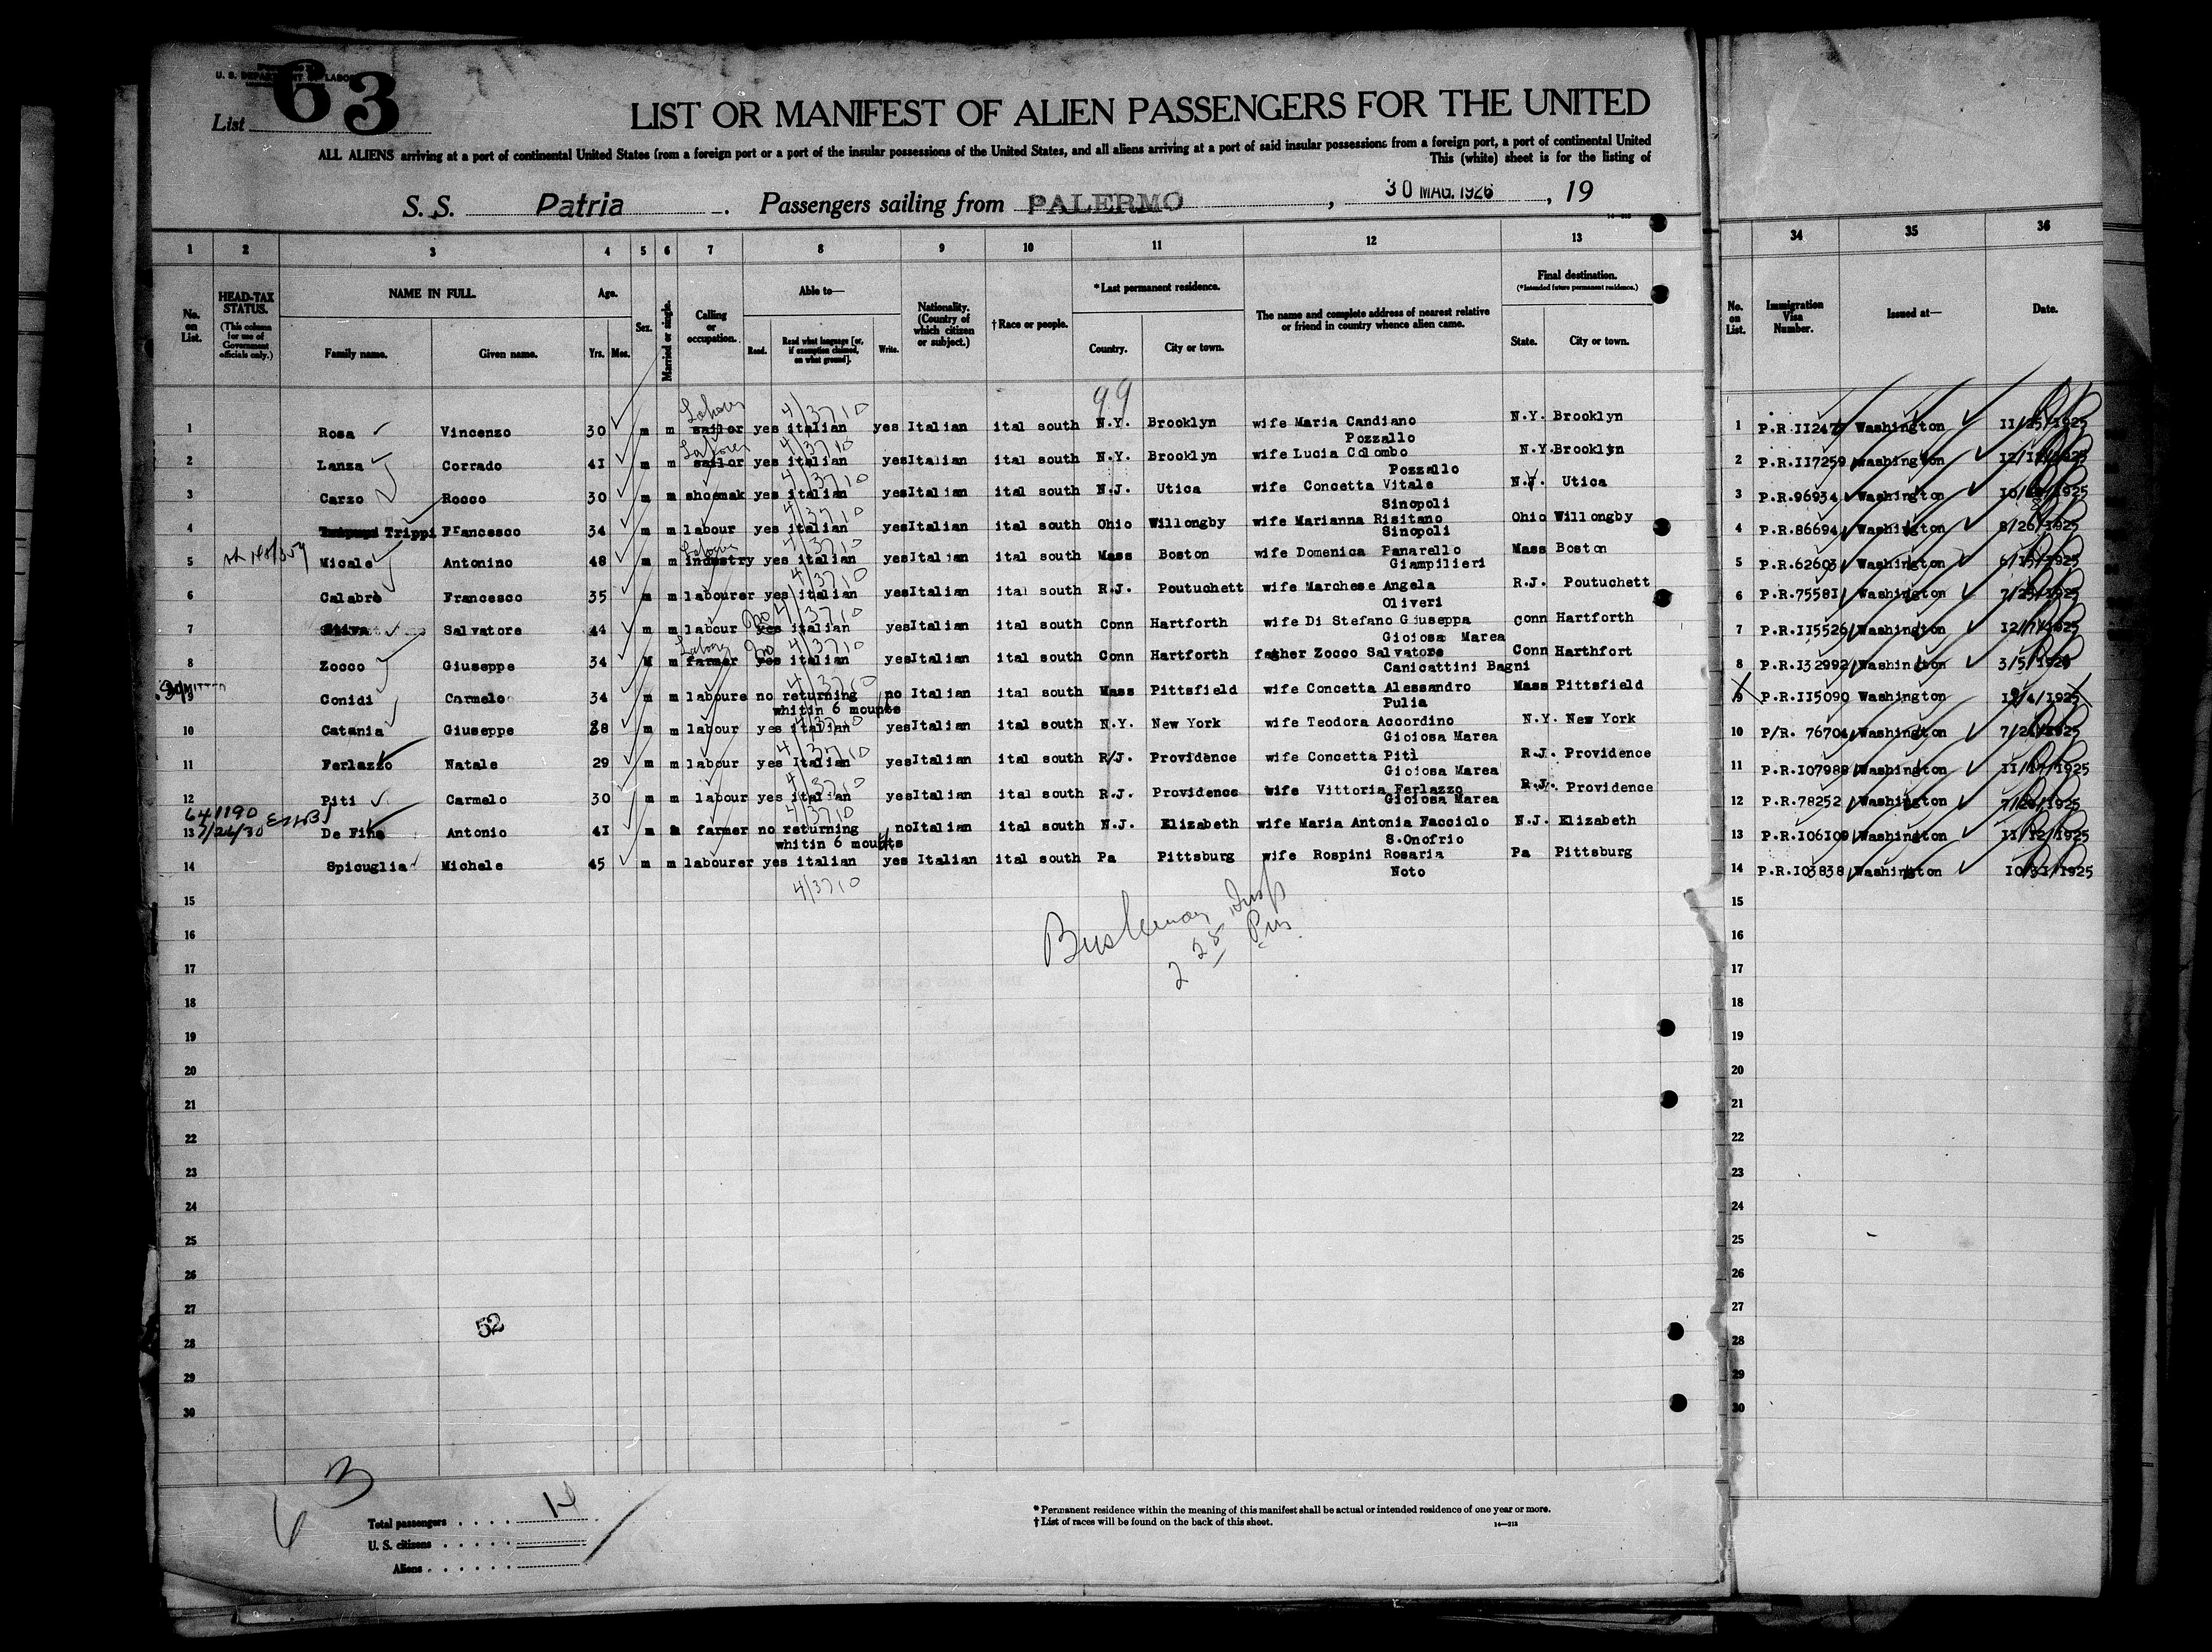 U. S. DEPARTMENT OF LABOR
List 63
LIST OR MANIFEST OF ALIEN PASSENGERS FOR THE UNITED
ALL ALIENS arriving at a port of continental United States from a foreign port or a port of the insular possessions of the United States, and all aliens arriving at a port of said insular possessions from a foreign port, a port of continental United
This (white) sheet is for the listing of
S. S. Patria. Passengers sailing from PALERMO, 30 MAG. 1926, 19
1 2 3 4 5 6 7 8 9 10 11 12 13 34 35 36
No. on List.
HEAD-TAX STATUS. (This column for use of Government officials only.)
NAME IN FULL.
Family name. Given name.
Age.
Yrs. Mos.
Sex.
Married or single.
Calling or occupation.
Able to—
Read. Read what language [or, if exemption claimed, on what ground]. Write.
Nationality. (Country of which citizen or subject.)
†Race or people.
*Last permanent residence.
Country. City or town.
The name and complete address of nearest relative or friend in country whence alien came.
Final destination. (*Intended future permanent residence.)
State. City or town.
No. on List.
Immigration Visa Number.
Issued at—
Date.
99
1 Rosa Vincenzo 30 m m sailor yes italian yes Italian ital south N.Y. Brooklyn wife Maria Candiano N.Y. Brooklyn 1 Washington 11/25/1925
Pozzallo
2 Lanza Corrado 41 m m sailor yes italian yes Italian ital south N.Y. Brooklyn wife Lucia Colombo N.Y. Brooklyn 2 P.R.117259 Washington
Pozzallo
3 Carzo Rocco 30 m m shoemak yes italian yes Italian ital south N.J. Utica wife Concetta Vitale Utica 3 P.R.96934 Washington
Sinopoli
4 Trippi Francesco 34 m m labour yes italian yes Italian ital south Ohio Willongby wife Marianna Risitano Ohio Willongby 4 P.R.86694 Washington 8/26/1925
Sinopoli
5 Micale Antonino 48 m m industry yes italian yes Italian ital south Mass Boston wife Domenica Panarello Mass Boston 5 P.R.62603 Washington 6/15/1925
Giampilieri
6 Calabrò Francesco 35 m m labourer yes italian yes Italian ital south R.J. Poutuchett wife Marchese Angela R.J. Poutuchett 6 P.R.75581 Washington
Oliveri
7 Salvatore 44 m m labour yes italian yes Italian ital south Conn Hartforth wife Di Stefano Giuseppa conn Hartforth 7 P.R.115526 Washington
Gioiosa Marea
8 Zocco Giuseppe 34 M m farmer yes italian yes Italian ital south Conn Hartforth father Zocco Salvatore Conn Harthfort 8 P.R.132992 Washington
Canicattini Bagni
ADMITTED
9 Conidi Carmelo 34 m m laboure no returning no Italian ital south Mass Pittsfield wife Concetta Alessandro Mass Pittsfield 9 P.R.115090 Washington
whitin 6 mounts Pulia
10 Catania Giuseppe 38 m m labour yes italian yes Italian ital south N.Y. New York wife Teodora Accordino N.Y. New York 10 P/R. 76704 Washington
Gioiosa Marea
11 Ferlazzo Natale 29 m m labour yes Italian yes Italian ital south R/J. Providence wife Concetta Pitì R.J. Providence 11 P.R.107988 Washington
Gioiosa Marea
12 Piti Carmelo 30 m m labour yes italian yes Italian ital south R.J. Providence wife Vittoria Ferlazzo R.J. Providence 12 P.R.78252 Washington
Gioiosa Marea
641190
7/26/30
13 De Fina Antonio 41 m m farmer no returning no Italian ital south N.J. Elizabeth wife Maria Antonia Facciolo N.J. Elizabeth 13 P.R.106109 Washington 11/12/1925
whitin 6 mounts S.Onofrio
14 Spicuglia Michele 45 m m labourer yes italian yes Italian ital south Pa Pittsburg wife Rospini Rosaria Pa Pittsburg 14 P.R.103838 Washington 10/31/1925
Noto
4/3710
15 15
16 16
17 17
18 18
19 19
20 20
21 21
22 22
23 23
24 24
25 25
26 26
27 27
52
28 28
29 29
30 30
63
Total passengers 14
U. S. citizens
Aliens
*Permanent residence within the meaning of this manifest shall be actual or intended residence of one year or more.
†List of races will be found on the back of this sheet.